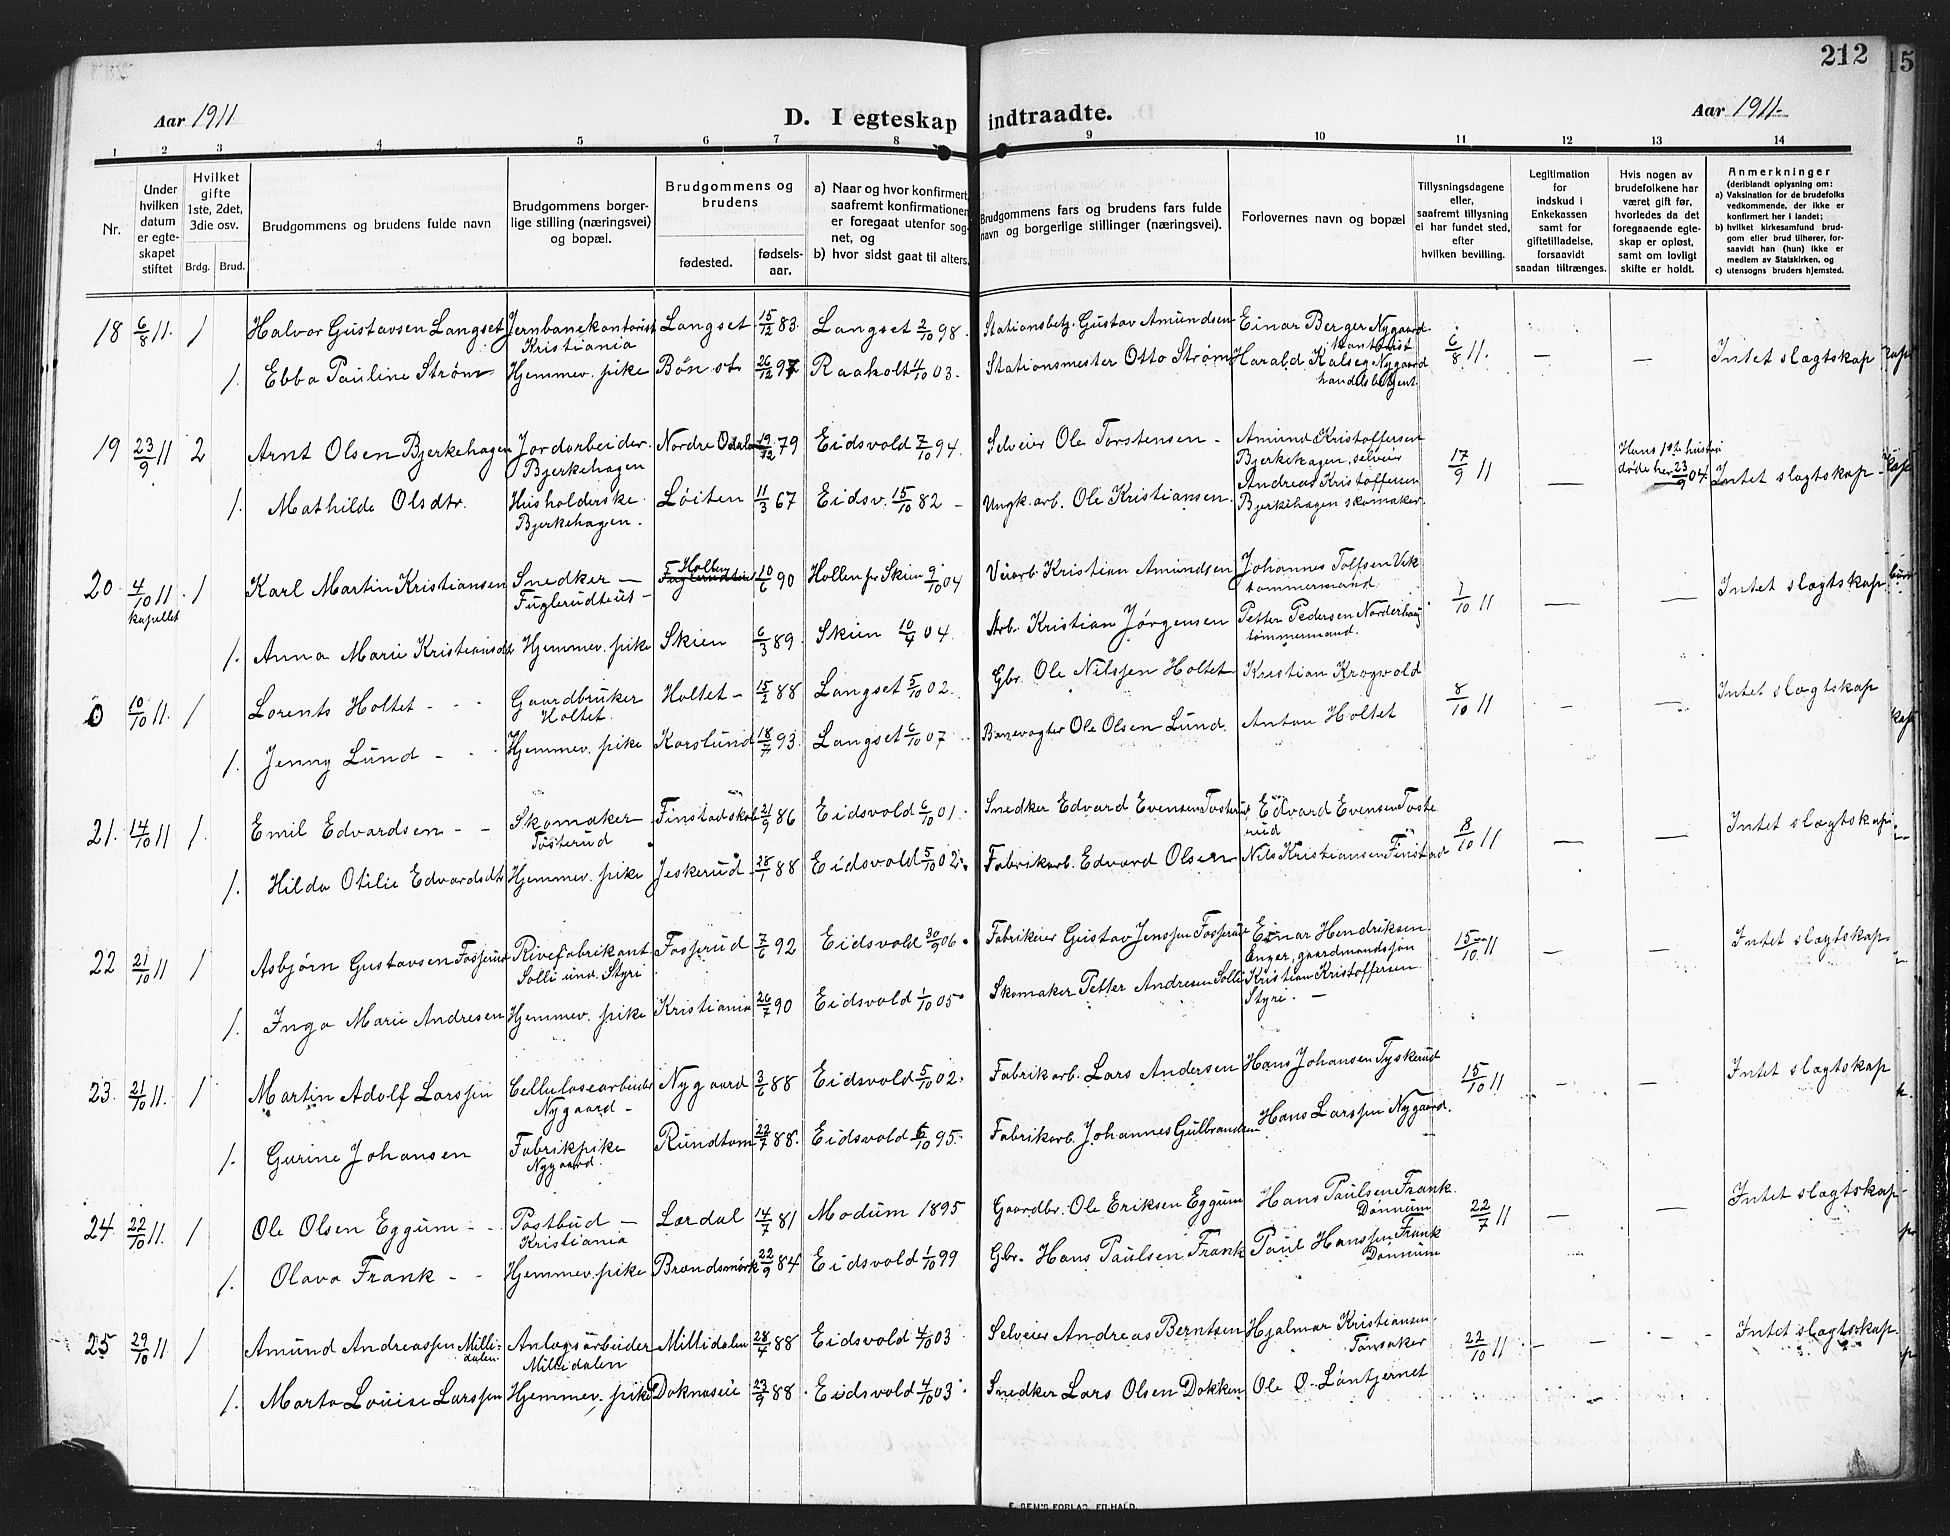 212
15
Aar 1911
D. I egteskap indtraadte.
Aar 1911
1 2 3 4 5 6 7 8 9 10 11 12 13 14
Nr.
Under hvilken datum er egteskapet stiftet
Hvilket gifte 1ste, 2det, 3die osv.
Brdg. Brud.
Brudgommens og brudens fulde navn
Brudgommens borgerlige stilling (næringsvei) og bopæl.
Brudgommens og brudens
fødested.
fødselsaar.
a) Naar og hvor konfirmert, saafremt konfirmationen er foregaat utenfor sognet, og
b) hvor sidst gaat til alters.
Brudgommens fars og brudens fars fulde navn og borgerlige stillinger (næringsvei).
Forlovernes navn og bopæl
Tillysningsdagene eller, saafremt tillysning ei har fundet sted, efter hvilken bevilling.
Legitimation for indskud i Enkekassen samt for giftetilladelse, forsaavidt saadan tiltrænges.
Hvis nogen av brudefolkene har været gift før, hvorledes da det foregaaende egteskap er opløst, samt om lovligt skifte er holdt.
Anmerkninger
(deriblandt oplysning om:
a) Vaksination for de brudefolks vedkommende, der ikke er konfirmert her i landet;
b) hvilket kirkesamfund brudgom eller brud tilhører, forsaavidt han (hun) ikke er medlem av Statskirken, og
c) utensogns bruders hjemsted.
18 6/8 11. 1 Halvor Gustavsen Langset Jernbanekontorist Kristiania Langset 15/12 83. Langset 2/10 98. Stationsbetj. Gustav Amundsen Einar Berger Nygaard kontorist 6/8 11. — — Intet slægtskap
1. Ebba Pauline Strøm Hjemmev. pike Bøn st. 26/12 97 Raaholt 4/10 03. Stationsmester Otto Strøm Harald Kalseg Nygaard handelsbetjent
19 23/9 11 2 Arnt Olsen Bjerkehagen Jordarbeider. Bjerkehagen Nordre Odalen 19/12 79 Eidsvold 7/10 94. Selveier Ole Torstensen - Amund Kristoffersen Bjerkehagen, selveier 17/9 11 — Hans 1ste hustru døde her 23/9 04. Intet slægtskap
1. Mathilde Olsdtr. Husholderske. Bjerkehagen. Løiten 11/3 67 Eidsv. 15/10 82 - Ungk. arb. Ole Kristiansen Andreas Kristoffersen Bjerkehagen skomaker.
20. 4/10 11. kapellet 1 Karl Martin Kristiansen Snedker — Fuglerudteut - Hollen 10/6 90 Hollen pr Skien 9/10 04 Veiarb. Kristian Amundsen Johannes Tolfsen Vik tømmermand 1/10 11 — — Intet slægtskap
1. Anna Marie Kristiansdt Hjemmev. pike Skien 6/3 89. Skien 10/4 04. Arb. Kristian Jørgensen Petter Pedersen Norderhaug tømmermand.
0 10/10 11. 1 Lorents Holtet - - - Gaardbruker Holtet. Holtet - 15/2 88 Langset 5/10 02. Gbr. Ole Nilssen Holtet Kristian Krogvold 8/10 11 - — Intet slægtskap
1. Jenny Lund - - - Hjemmev. pike Karslund 18/7 93. Langset 6/10 07 Banevogter Ole Olsen Lund. Anton Holtet
21. 14/10 11 1. Emil Edvardsen - - Skomaker Tosterud Finstadskob 21/9 86 Eidsvold 6/10 01. Snedker Edvard Evensen Tosterud Edvard Evensen Tosterud 8/10 11 — — Intet slægtskap
1. Hilda Otilie Edvardsdtr Hjemmev. pike Jeskerud 28/1 88 Eidsvold 5/10 02. Fabrikarb. Edvard Olsen Nils Kristiansen Finstad
22 21/10 11 1 Asbjørn Gustavsen Fosserud Rivefabrikant Solli und. Styri Fosserud 7/6 92 Eidsvold 30/9 06. Fabrikeier Gustav Jenssen Fosserud Einar Hendriksen Enger, gaardmandssøn 15/10 11 — — Intet slægtskap.
1. Inga Marie Andresen Hjemmev. pike Kristiania 26/7 90 Eidsvold 1/10 05. Skomaker Petter Andresen Solli Kristian Kristoffersen Styri. —
23. 21/10 11. 1 Martin Adolf Larssen Cellulosearbeider Nygaard - Nygaard 3/6 88 Eidsvold 5/10 02. Fabrikarb. Lars Andersen Hans Johansen Tyskerud 15/10 11 - - Intet slægtskap
1. Gurine Johansen Fabrikpike Nygaard. Rundtom 22/7 88. Eidsvold 6/10 95. Fabrikarb. Johannes Gulbrandsen Hans Larssen Nygaard.
24. 22/10 11. 1 Ole Olsen Eggum - - Postbud — Kristiania Lærdal 14/7 81 Modum 1895 Gaardbr. Ole Eriksen Eggum Hans Paulsen Frank Dønnum 22/7 11 — — Intet slægtskap
1. Olava Frank - - Hjemmev. pike Brandsmørk 22/9 84 Eidsvold 1/10 99 Gbr. Hans Paulsen Frank Paul Hanssen Frank Dønnum
25 29/10 11 1 Amund Andreassen Millidalen Anlægsarbeider Millidalen Millidalen 28/4 88 Eidsvold 4/10 03. Selveier Andreas Berntsen Hjalmar Kristiansen Tønsaker 22/10 11 - - Intet slægtskap
1. Marta Louise Larssen Hjemmev. pike Doknaseie 23/9 88. Eidsvold 4/10 03. Snedker Lars Olsen Dokken Ole O. Løntjernet